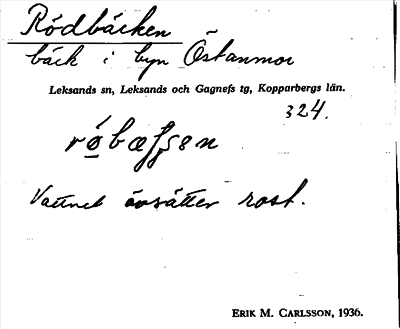 Rödbäcken
bäck i byn Östanmor
Leksands sn, Leksands och Gagnefs tg, Kopparbergs län.
324.
Vattnet avsätter rost.
ERIK M. CARLSSON, 1936.